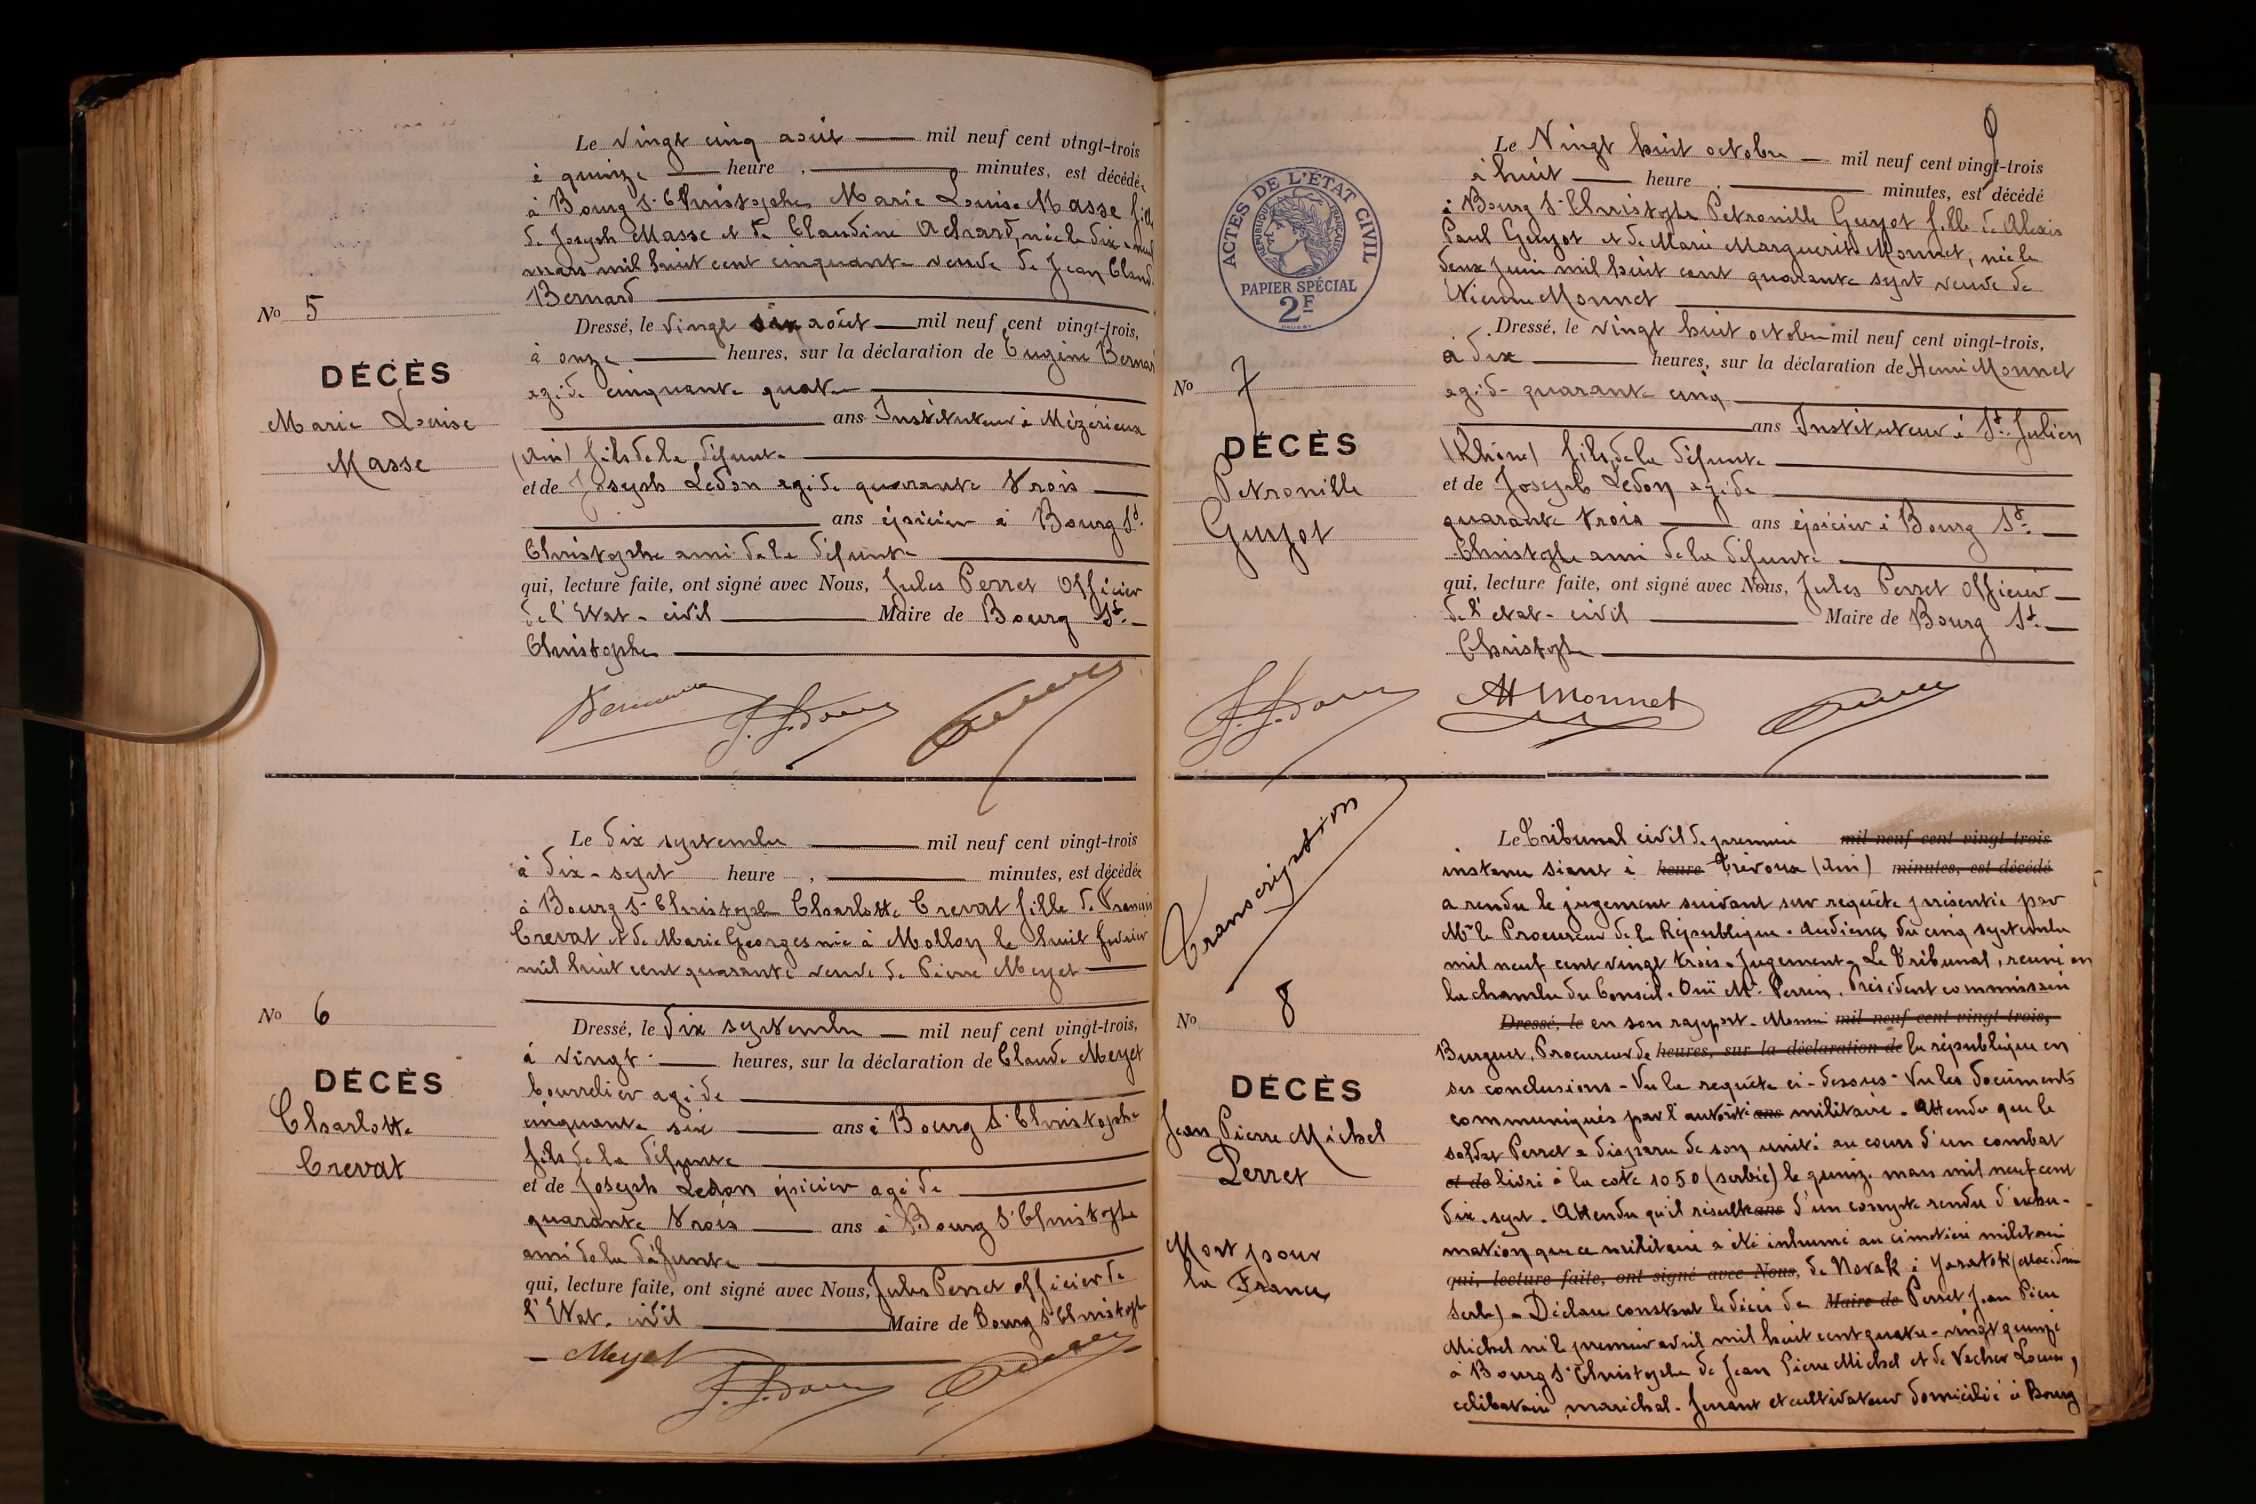 Le vingt cinq août mil neuf cent vingt-trois
à quinze heure , minutes, est décédée
à Bourg St Christophe Marie Louise Masse fille
de Joseph Masse et de Claudine Achard, née le dix-neuf
mars mil huit cent cinquante veuve de Jean Claude
Bernard
No 5
Dressé, le vingt six août mil neuf cent vingt-trois,
à onze heures, sur la déclaration de Eugène Bernard
DÉCÈS
agé de cinquante quatre
Marie Louise
ans Instituteur à Mézérieux
Masse
(Ain) fils de la défunte
et de Joseph Ledon agé de quarante trois
ans épicier à Bourg St
Christophe ami de la défunte
qui, lecture faite, ont signé avec Nous, Jules Perret Officier
de l'Etat-civil Maire de Bourg St
Christophe
Le dix septembre mil neuf cent vingt-trois
à dix-sept heure , minutes, est décédée
à Bourg St Christophe Charlotte Crevat fille de François
Crevat et de Marie Georges née à Mollon le huit février
mil huit cent quarante veuve de Pierre Meyet
No 6
Dressé, le dix septembre mil neuf cent vingt-trois,
à vingt heures, sur la déclaration de Claude Meyet
DÉCÈS
bourrelier agé de
Charlotte
cinquante six ans à Bourg St Christophe
Crevat
fils de la défunte
et de Joseph Ledon épicier agé de
quarante trois ans à Bourg St Christophe
ami de la défunte
qui, lecture faite, ont signé avec Nous, Jules Perret officier de
l'Etat-civil Maire de Bourg St Christophe
Meyet
Le Vingt huit octobre mil neuf cent vingt-trois
à huit heure , minutes, est décédé
à Bourg St Christophe Petronille Guyot fille de Alexis
Paul Guyot et de Marie Marguerite Monnet, née le
deux Juin mil huit cent quarante sept veuve de
Etienne Monnet
ACTES DE L'ÉTAT CIVIL
RÉPUBLIQUE FRANÇAISE
PAPIER SPÉCIAL
2F
Dressé, le vingt huit octobre mil neuf cent vingt-trois,
à dix heures, sur la déclaration de Henri Monnet
No 7
agé de quarante cinq
DÉCÈS
ans Instituteur à St Julien
(Rhône) fils de la défunte
Petronille
et de Joseph Ledon agé de
Guyot
quarante trois ans épicier à Bourg St
Christophe ami de la défunte
qui, lecture faite, ont signé avec Nous, Jules Perret Officier
de l'etat-civil Maire de Bourg St
Christophe
H Monnet
Transcription
Le Tribunal civil de première mil neuf cent vingt-trois
instance séant à heure Trévoux (Ain) minutes, est décédé
a rendu le jugement suivant sur requête présentée par
Mr le Procureur de la République. Audience du cinq septembre
mil neuf cent vingt trois. Jugement. Le Tribunal, reuni en
la chambre du Conseil. Ouï Mr Perrin, Président commissaire
No 8
Dressé, le en son rapport. Monsieur mil neuf cent vingt-trois,
Burguet, Procureur de heures, sur la déclaration de la république en
DÉCÈS
ses conclusions - Vu la requête ci-dessus - Vu les documents
communiqués par l'autorité ans militaire. Attendu que le
Jean Pierre Michel
soldat Perret a disparu de son unité au cours d'un combat
Perret
et de livré à la cote 1050 (serbie) le quinze mars mil neuf cent
dix-sept. Attendu qu'il résulte ans d'un compte rendu d'exhu-
Mort pour
mation que ce militaire a été inhumé au cimetière militaire
la France
qui, lecture faite, ont signé avec Nous, de Novak à Yaratok (Macédoine
Serbe). Déclare constant le décès de Maire de Perret Jean Pierre
Michel né le premier avril mil huit cent quatre-vingt quinze
à Bourg St Christophe de Jean Pierre Michel et de Vacher Louise,
célibataire, maréchal-ferrant et cultivateur domicilié à Bourg